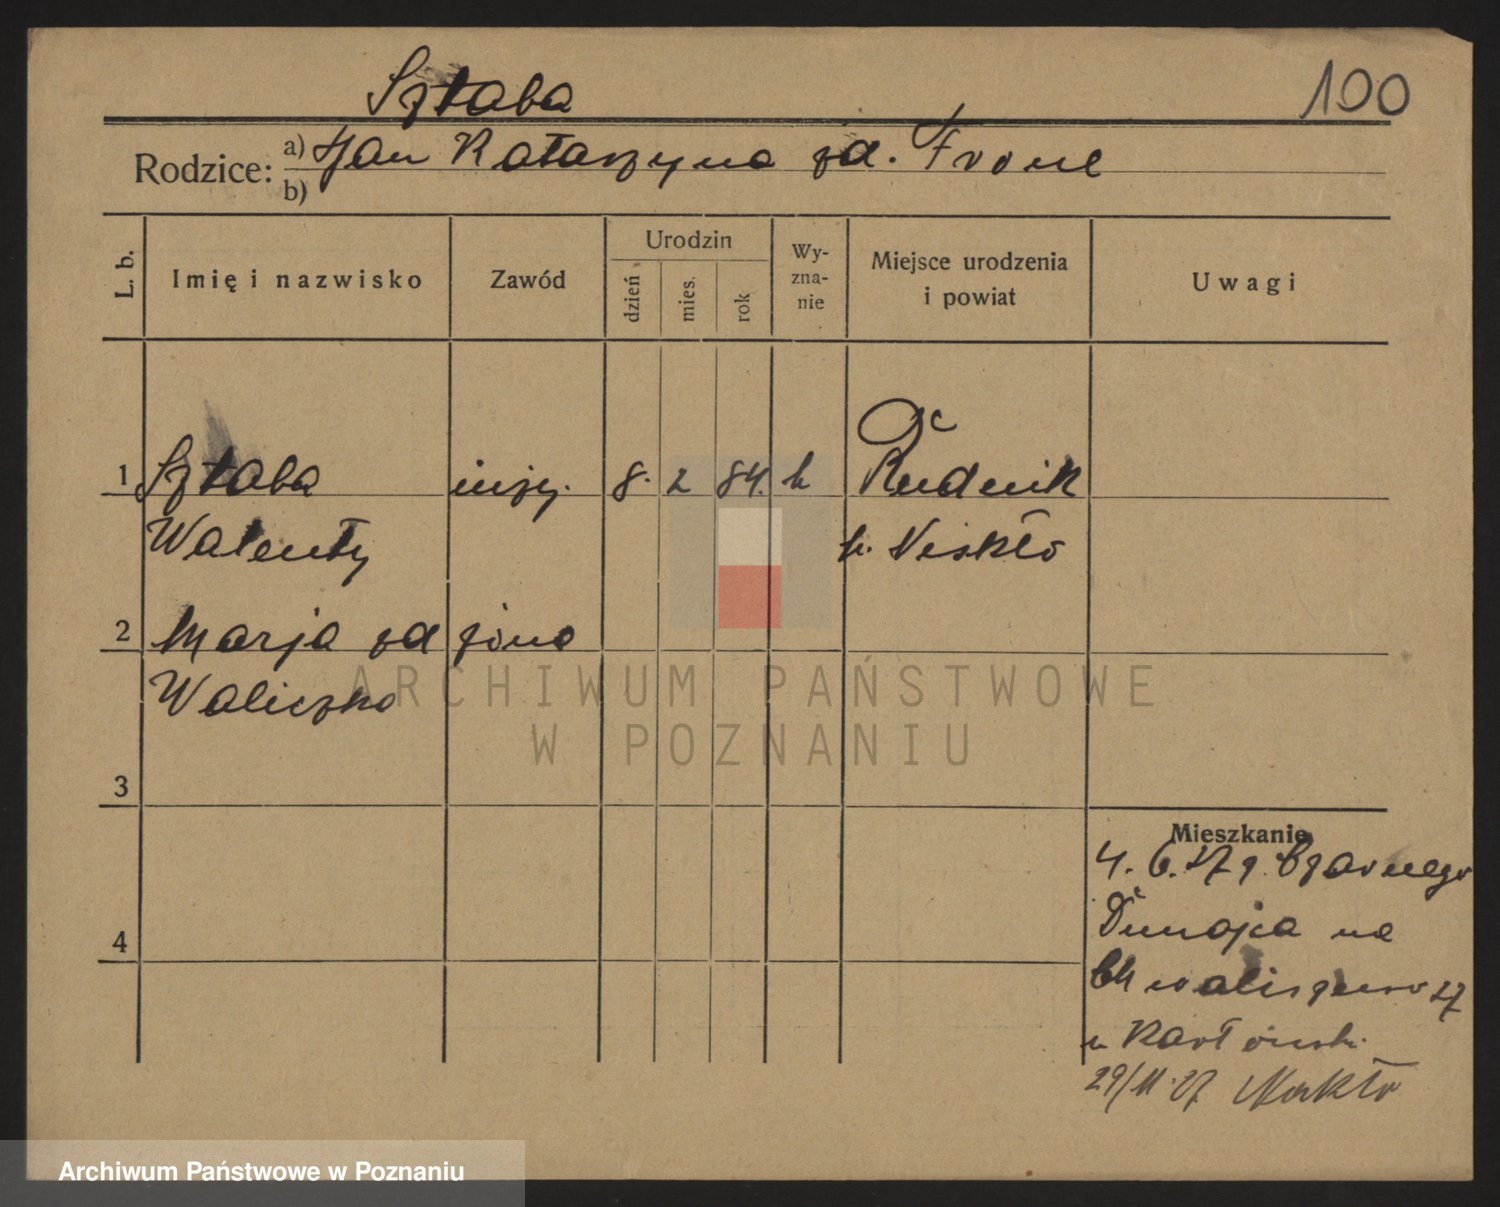 Sztaba
100
Rodzice: a) Jan Katarzyna zd. Frone
b)
L. b. Imię i nazwisko Zawód Urodzin dzień mies. rok Wy-zna-nie Miejsce urodzenia i powiat Uwagi
1 Sztaba inży. 8. 2 84. k Rudnik
Walenty p. Niskło
2 Marja zd żona
Waliczko
3
Mieszkanie
4. 6. 27 z Czarnego
4
Dunajca na
Chwaliszewo 27
u
29/11.27 Nakło
ARCHIWUM PAŃSTWOWE
W POZNANIU
Archiwum Państwowe w Poznaniu